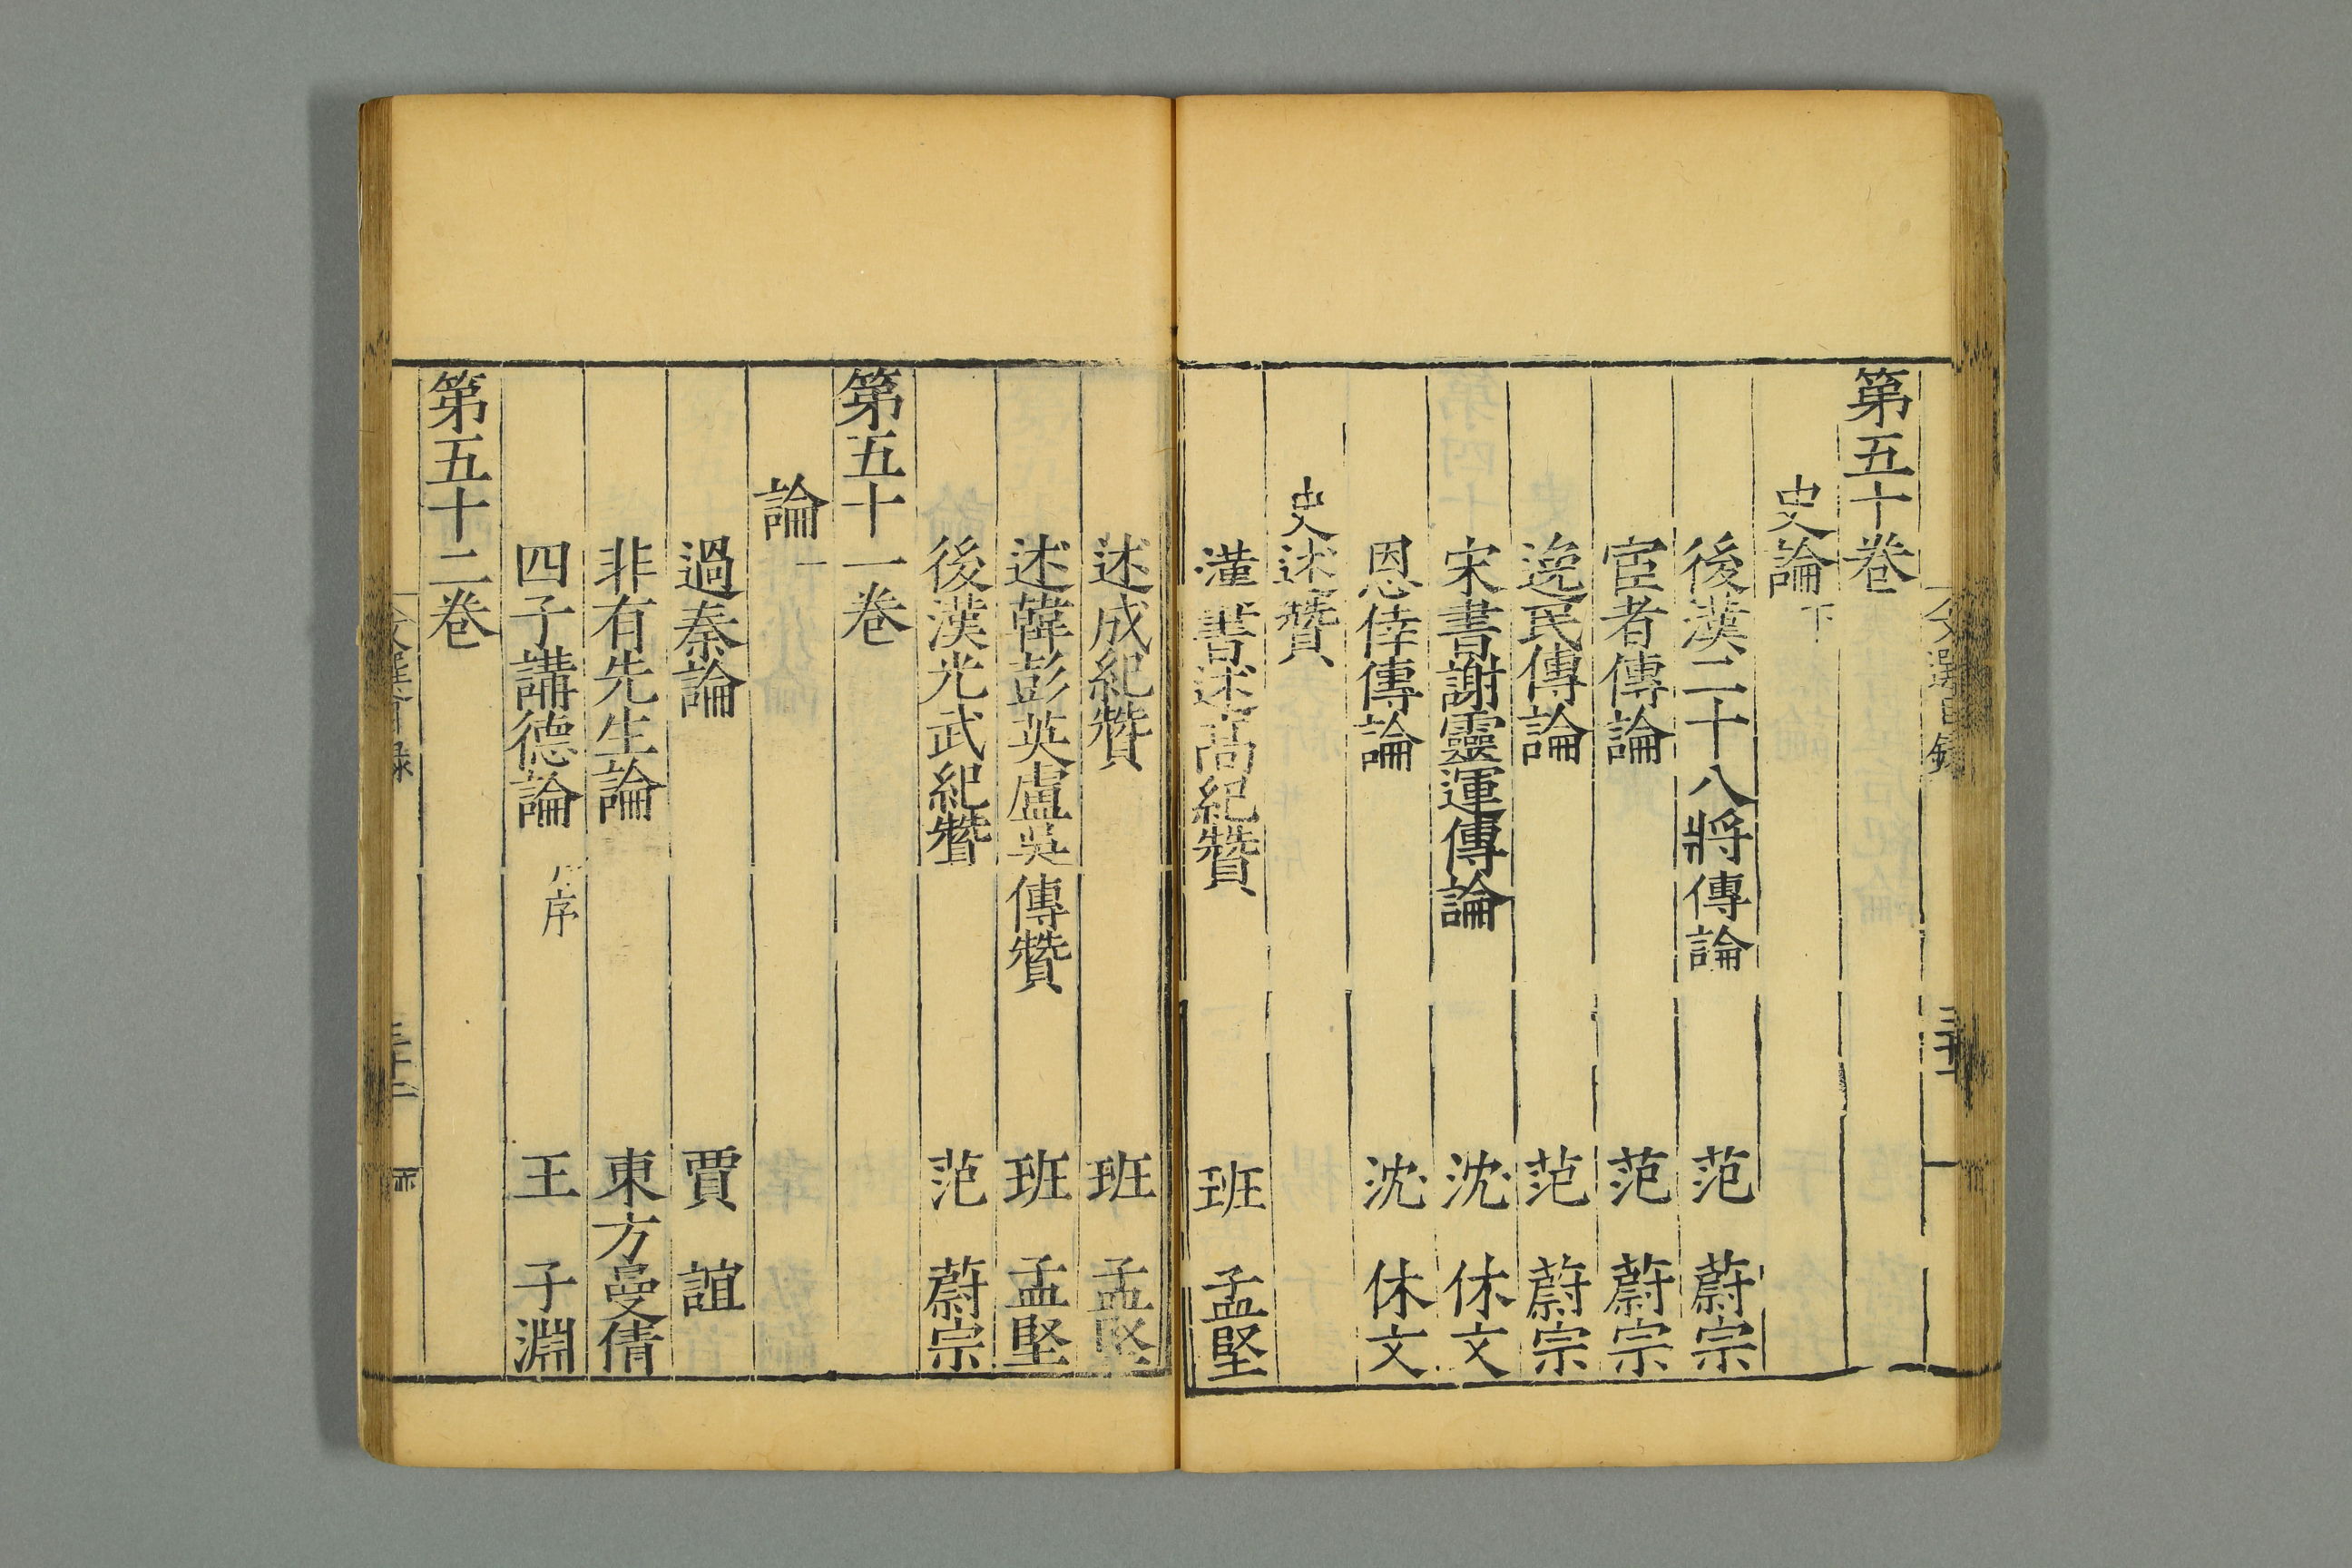 第五十卷
史論下
後漢二十八將傳論 范蔚宗
宦者傳論 范蔚宗
逸民傳論 范蔚宗
宋書謝靈運傳論 沈休文
恩倖傳論 沈休文
史述贊
漢書述高紀贊 班孟堅
述成紀贊 班孟堅
述韓彭英盧吳傳贊 班孟堅
後漢光武紀贊 范蔚宗
第五十一卷
論一
過秦論 賈誼
非有先生論 東方曼倩
四子講德論 序 王子淵
第五十二卷